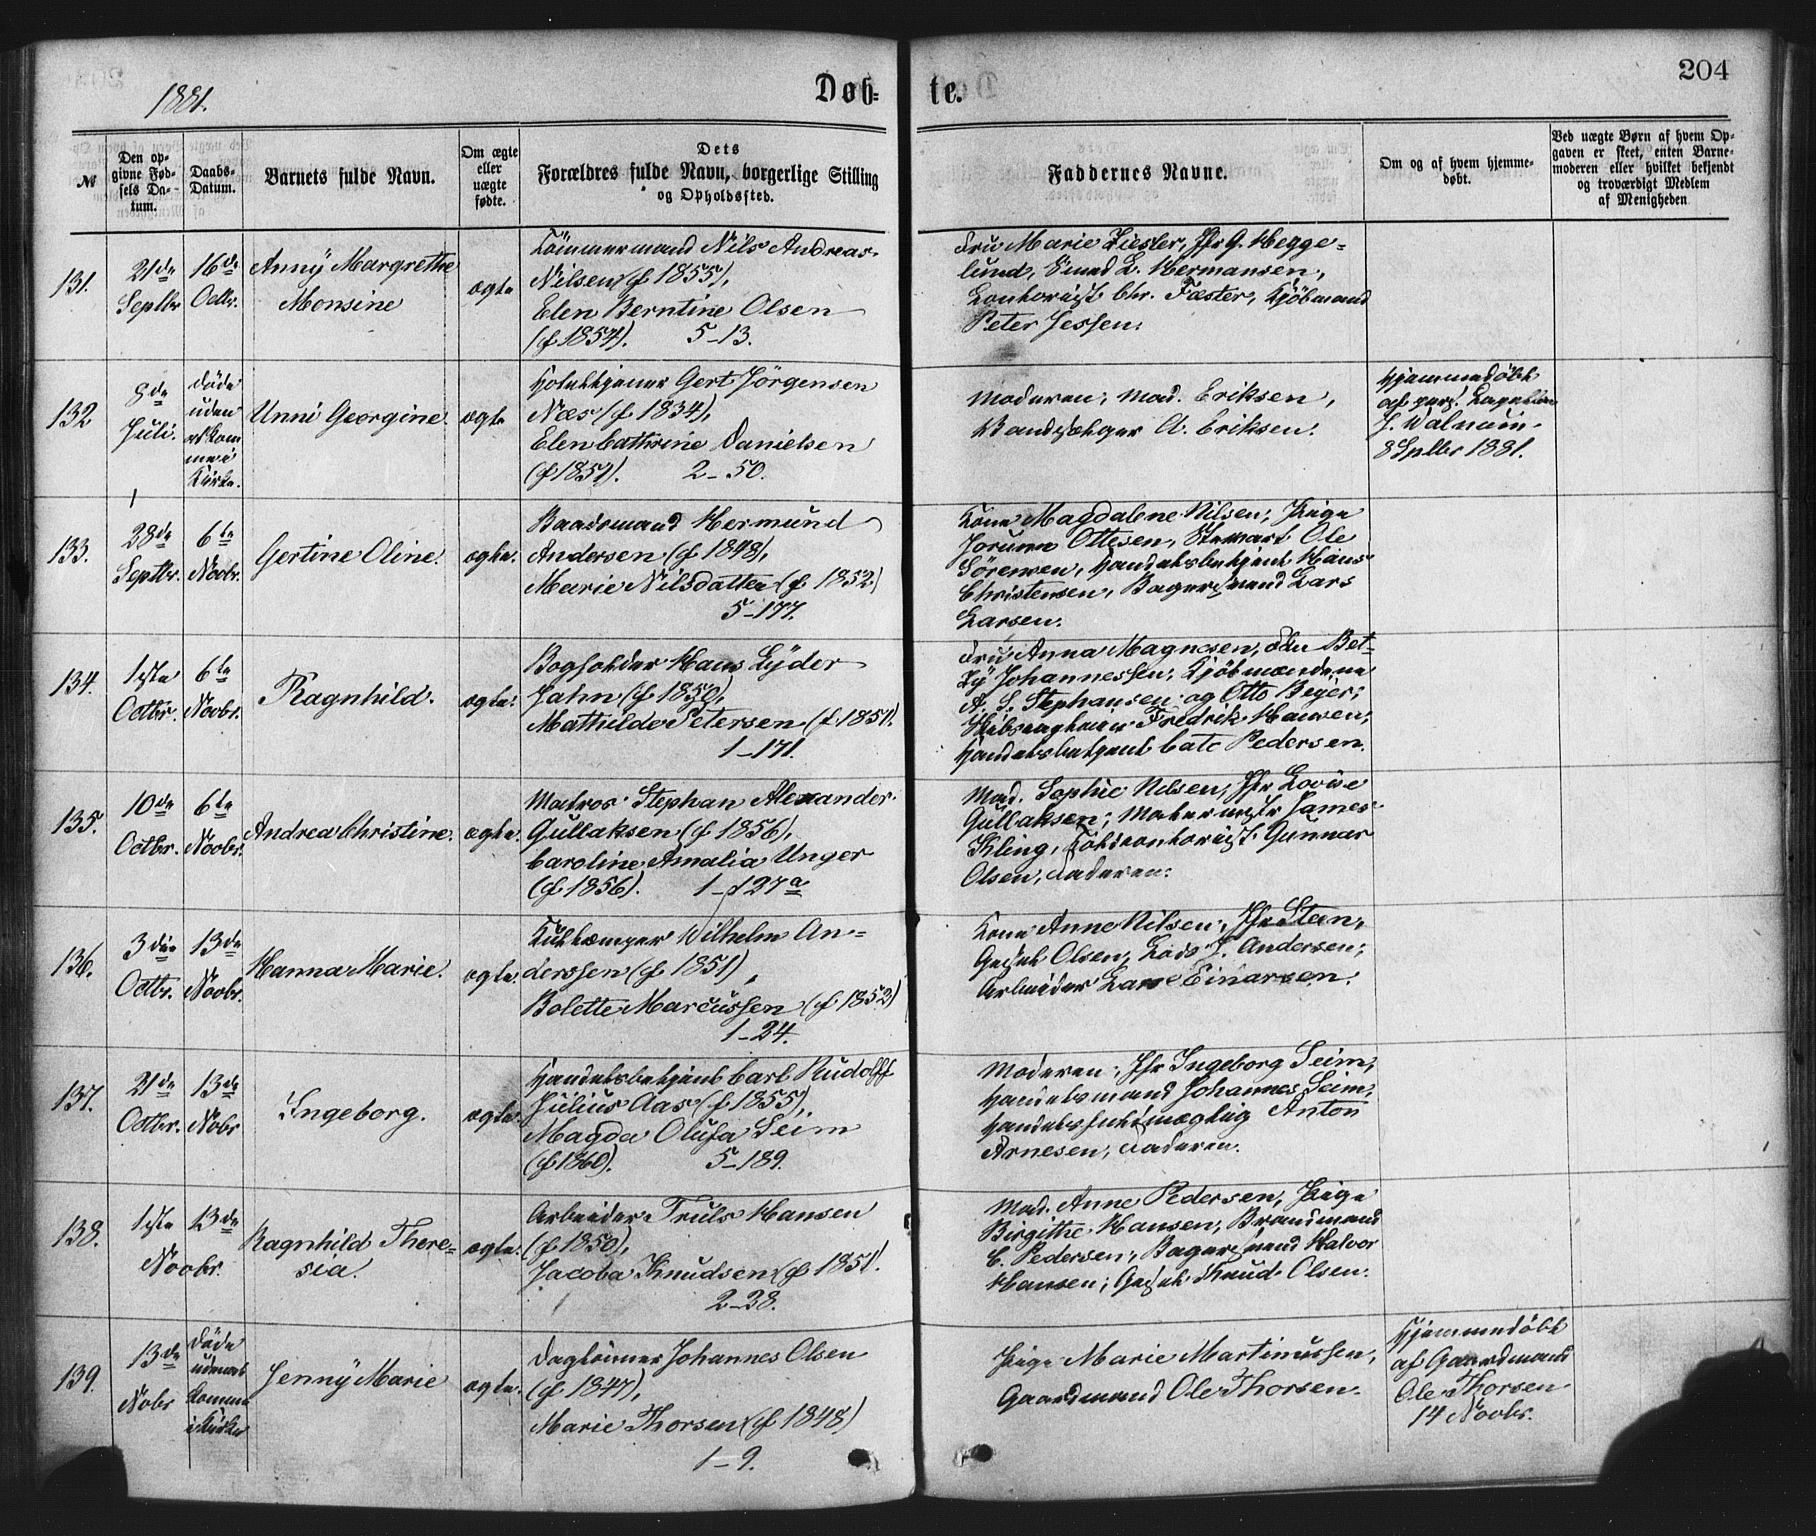 1881.
Døb-
te.
204
№
Den op-
givne Fød-
sels Da-
tum.
Daabs-
Datum.
Barnets fulde Navn.
Om ægte
eller
uægte
fødte.
Dets
Forældres fulde Navn, borgerlige Stilling
og Opholdssted.
Faddernes Navne.
Om og af hvem hjemme-
døbt.
Ved uægte Børn af hvem Op-
gaven er skeet, enten Barne-
moderen eller hvilket bekjendt
og troværdigt Medlem
af Menigheden
131.
21de
Septbr
16de
Octbr.
Anny Margrethe
Monsine
ægte
Tömmermand Nils Andreas
Nilsen (f 1855),
Elen Berntine Olsen
(f 1854). 5-13.
Fru Marie Ziesler, Jfr G. Hegge-
lund, Smed L. Hermansen,
Contorist Chr. Fæster, Kjöbmand
Peter Jessen.
132
8de
Juli.
döde
uden
at kom
me i
Kirke.
Unni Georgine.
ægte
Gert Jörgensen
Næs (f 1834),
Elen Cathrine Danielsen
(f 1851). 2-50.
Moderen, Mad. Eriksen,
A. Eriksen.
Hjemmedöbt
af pers. Capellan
J. Walnum.
8 Sptbr 1881.
133.
28de
Septbr.
6te
Novbr.
Gertine Oline.
ægte.
Baadsmand Hermund
Andersen (f 1848),
Marie Nilsdatter (f 1852)
5-177.
Kone Magdalene Nilsen, Pige
Jorunn Ottesen, Stewart Ole
Sörensen, Handelsbetjent Hans
Christensen, Bagersvend Lars
Larsen.
134.
1ste
Octbr.
6te
Novbr.
Ragnhild.
ægte.
Bogholder Hans Lyder
Jahn (f 1850),
Mathilde Petersen (f 1851).
1-171.
Fru Anna Magnesen, Fru Bet-
ty Johannessen, Kjöbmændene
A. S. Stephansen og Otto Beyer,
Fredrik Hansen,
Handelsbetjent Cato Pedersen.
135.
10de
Octbr.
6te
Novbr.
Andrea Christine.
ægte.
Matros Stephan Alexander
Gullaksen (f 1856),
Caroline Amalia Unger
(f 1856). 1-127a
Mad. Sophie Nilsen, Jfr Lovise
Gullaksen, Malermester James
Kling, Toldcontorist Gunnar
Olsen, Faderen.
136.
3die
Octbr.
13de
Novbr.
Hanna Marie.
ægte.
Kulkemper Wilhelm An-
derssen (f 1851),
Bolette Marcussen (f 1852)
1-24.
Kone Anne Nilsen, Jfr Steen,
Gesel Olsen, Lods J. Andersen,
Arbeider Lars Einarsen.
137.
21de
Octbr.
13de
Nobr
Ingeborg.
ægte.
Handelsbetjent Carl Rudolff
Julius Aas (f 1855),
Magda Olufa Seim
(f 1860). 5-189.
Moderen, Jfr Ingeborg Seim,
Handelsmand Johannes Seim,
Handelsfuldmægtig Anton
Arnesen, Faderen.
138.
1ste
13de
Novbr.
Ragnhild There-
sia.
ægte.
Arbeider Truls Hansen
(f 1850),
Jacoba Knudsen (f 1851).
2-38.
Mad. Anne Pedersen, Pige
Birgithe Hansen, Brandmand
C. Pedersen, Bagersvend Halvor
Hansen, Gesel Knud Olsen.
139.
13de
Nobr
Döde
uden at
komme
i Kirke
Jenny Marie
ægte.
Daglönner Johannes Olsen
(f 1847),
Marie Thorsen (f 1848)
1-9.
Pige Marie Martinussen,
Gaardmand Ole Thorsen.
Hjemmedöbt
af Gaardmand
Ole Thorsen
14 Novbr.